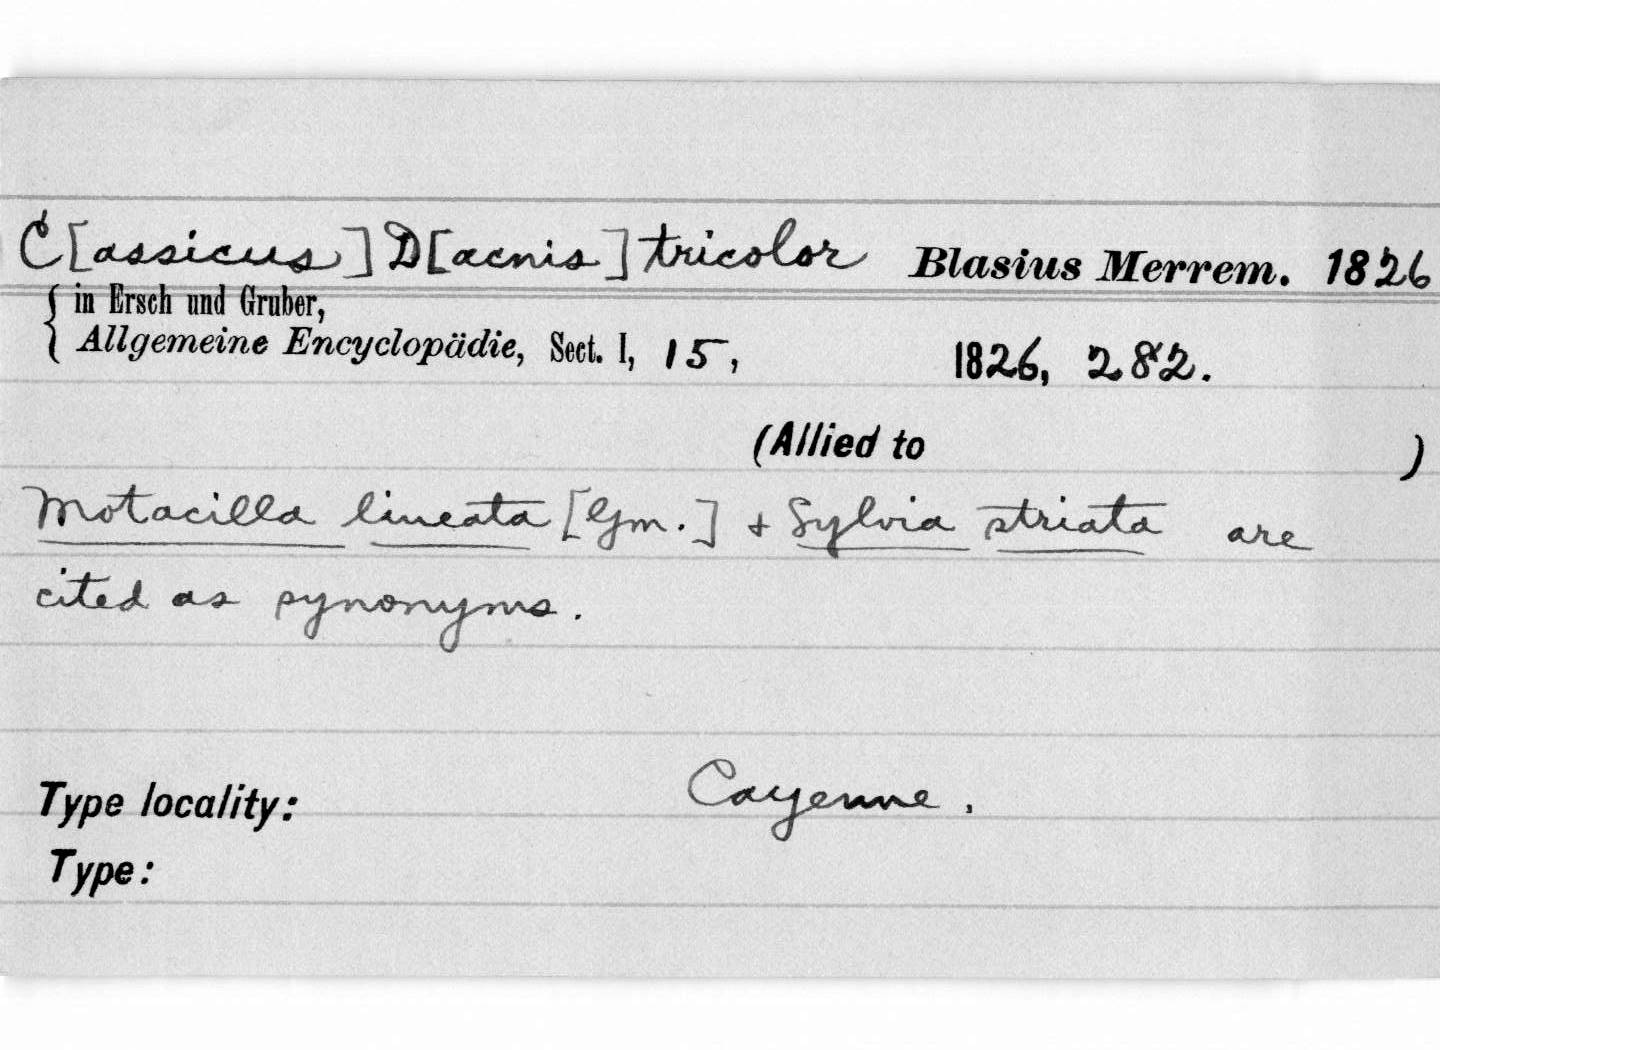 C[assicus] D[acnis] tricolor Blasius Merrem. 1826
in Ersch und Gruber,
Allgemeine Encyclopädie, Sect. I, 15, 1826, 282.
(Allied to )
Motacilla lineata [Gm.] + Sylvia striata are
cited as synonyms.
Type locality: Cayenne.
Type: